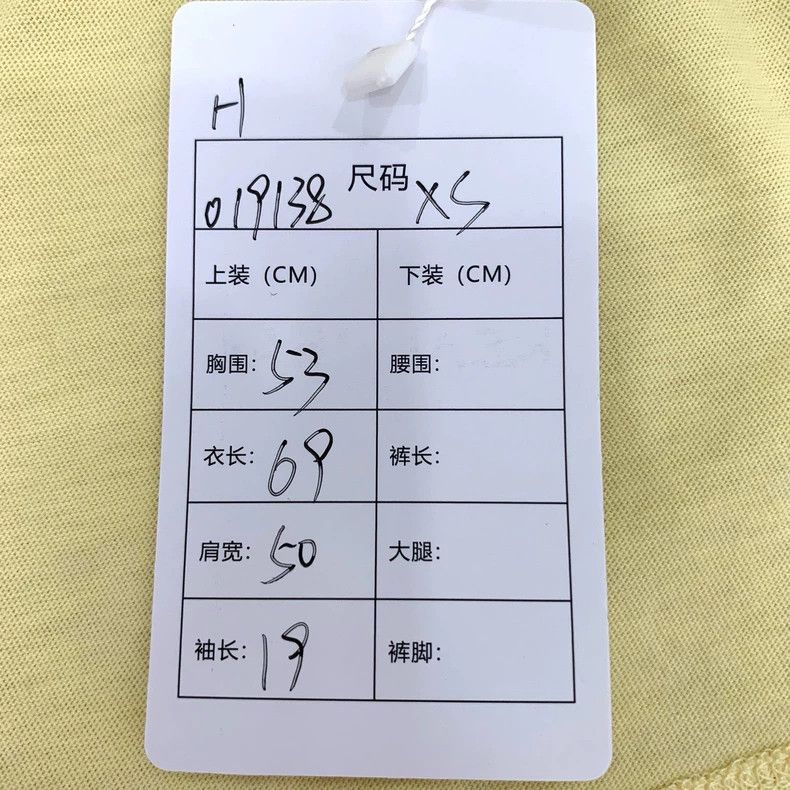 H
019138 尺码 XS
上装（CM） 下装（CM）
胸围：53 腰围：
衣长：69 裤长：
肩宽：50 大腿：
袖长：19 裤脚：